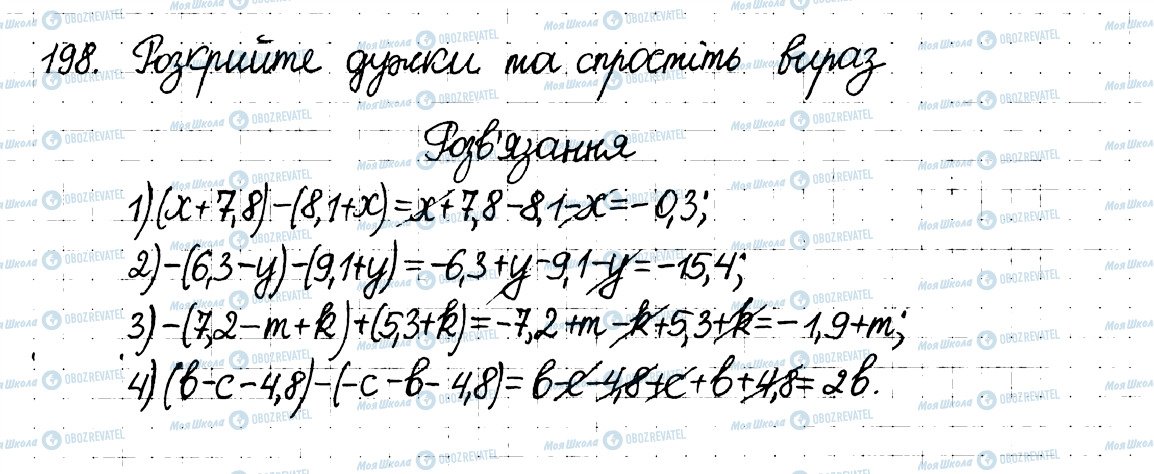 198. Розкрийте дужки та спростіть вираз
Розв'язання
1) (x+7,8)-(8,1+x)=x+7,8-8,1-x=-0,3;
2) -(6,3-y)-(9,1+y)=-6,3+y-9,1-y=-15,4;
3) -(7,2-m+k)+(5,3+k)=-7,2+m-k+5,3+k=-1,9+m;
4) (в-с-4,8)-(-с-в-4,8)=в-с-4,8+с+в+4,8=2в.
Моя Школа OBOZREVATEL